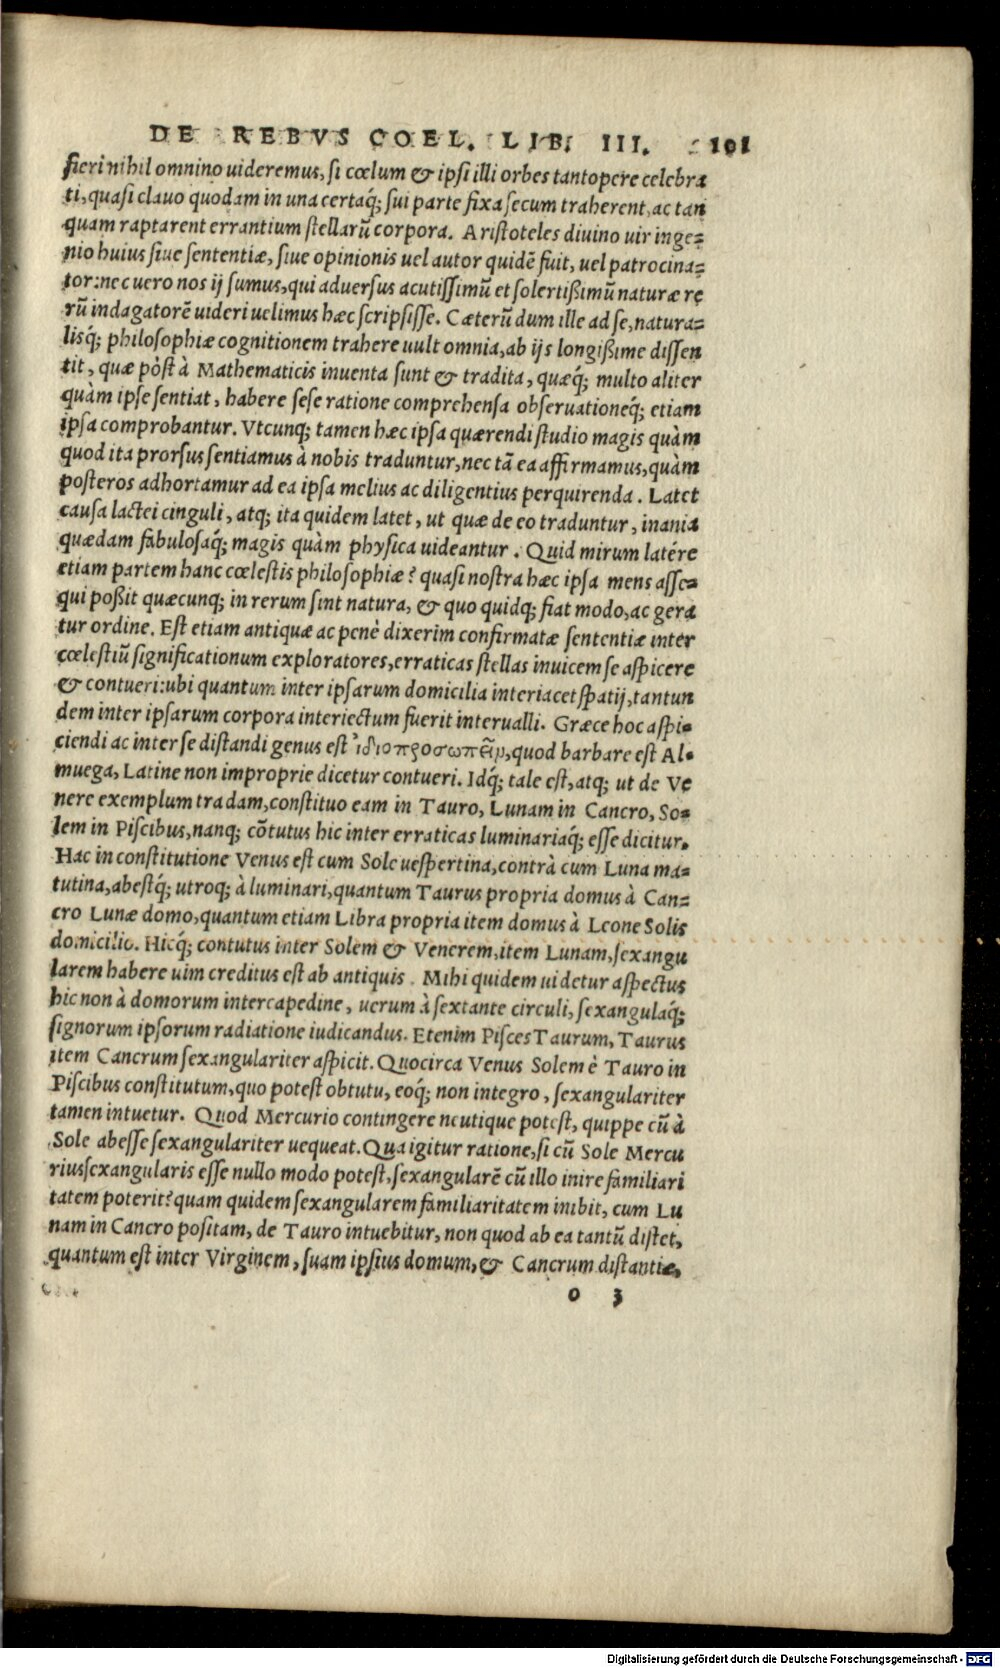 DE REBVS COEL. LIB. III. 101
fieri nihil omnino uideremus, si cœlum & ipsi illi orbes tantopere celebra
ti, quasi clauo quodam in una certaq́; sui parte fixa secum traherent, ac tan
quam raptarent errantium stellarũ corpora. Aristoteles diuino uir inge=
nio huius siue sententiæ, siue opinionis uel autor quidẽ fuit, uel patrocina=
tor: nec uero nos ij sumus, qui aduersus acutissimũ et solertißimũ naturæ re
rũ indagatorẽ uideri uelimus hæc scripsisse. Cæterũ dum ille ad se, natura=
lisq́; philosophiæ cognitionem trahere uult omnia, ab ijs longißime dissen
tit, quæ pòst à Mathematicis inuenta sunt & tradita, quæq́; multo aliter
quàm ipse sentiat, habere sese ratione comprehensa obseruationeq́; etiam
ipsa comprobantur. Vtcunq; tamen hæc ipsa quærendi studio magis quàm
quod ita prorsus sentiamus à nobis traduntur, nec tã ea affirmamus, quàm
posteros adhortamur ad ea ipsa melius ac diligentius perquirenda. Latet
causa lactei cinguli, atq; ita quidem latet, ut quæ de eo traduntur, inania
quædam fabulosaq́; magis quàm physica uideantur. Quid mirum latére
etiam partem hanc cœlestis philosophiæ? quasi nostra hæc ipsa mens asse=
qui poßit quæcunq; in rerum sint natura, & quo quidq; fiat modo, ac gera
tur ordine. Est etiam antiquæ ac penè dixerim confirmatæ sententiæ inter
cœlestiũ significationum exploratores, erraticas stellas inuicem se aspicere
& contueri: ubi quantum inter ipsarum domicilia interiacet spatij, tantun
dem inter ipsarum corpora interiectum fuerit interualli. Græce hoc aspi=
ciendi ac inter se distandi genus est quod barbare est Al=
muega, Latine non improprie dicetur contueri. Idq́; tale est, atq; ut de Ve
nere exemplum tradam, constituo eam in Tauro, Lunam in Cancro, So=
lem in Piscibus, nanq; cõtutus hic inter erraticas luminariaq́; esse dicitur.
Hac in constitutione Venus est cum Sole uespertina, contrà cum Luna ma=
tutina, abestq́; utroq; à luminari, quantum Taurus propria domus à Can=
cro Lunæ domo, quantum etiam Libra propria item domus à Leone Solis
domicilio. Hicq́; contutus inter Solem & Venerem, item Lunam, sexangu
larem habere uim creditus est ab antiquis. Mihi quidem uidetur aspectus
hic non à domorum intercapedine, uerum à sextante circuli, sexangulaq́;
signorum ipsorum radiatione iudicandus. Etenim Pisces Taurum, Taurus
item Cancrum sexangulariter aspicit. Quocirca Venus Solem è Tauro in
Piscibus constitutum, quo potest obtutu, eoq́; non integro, sexangulariter
tamen intuetur. Quod Mercurio contingere neutique potest, quippe cũ à
Sole abesse sexangulariter nequeat. Qua igitur ratione, si cũ Sole Mercu
rius sexangularis esse nullo modo potest, sexangularẽ cũ illo inire familiari
tatem poterit? quam quidem sexangularem familiaritatem inibit, cum Lu
nam in Cancro positam, de Tauro intuebitur, non quod ab ea tantũ distet,
quantum est inter Virginem, suam ipsius domum, & Cancrum distantiæ,
o 3
Digitalisierung gefördert durch die Deutsche Forschungsgemeinschaft - DFG